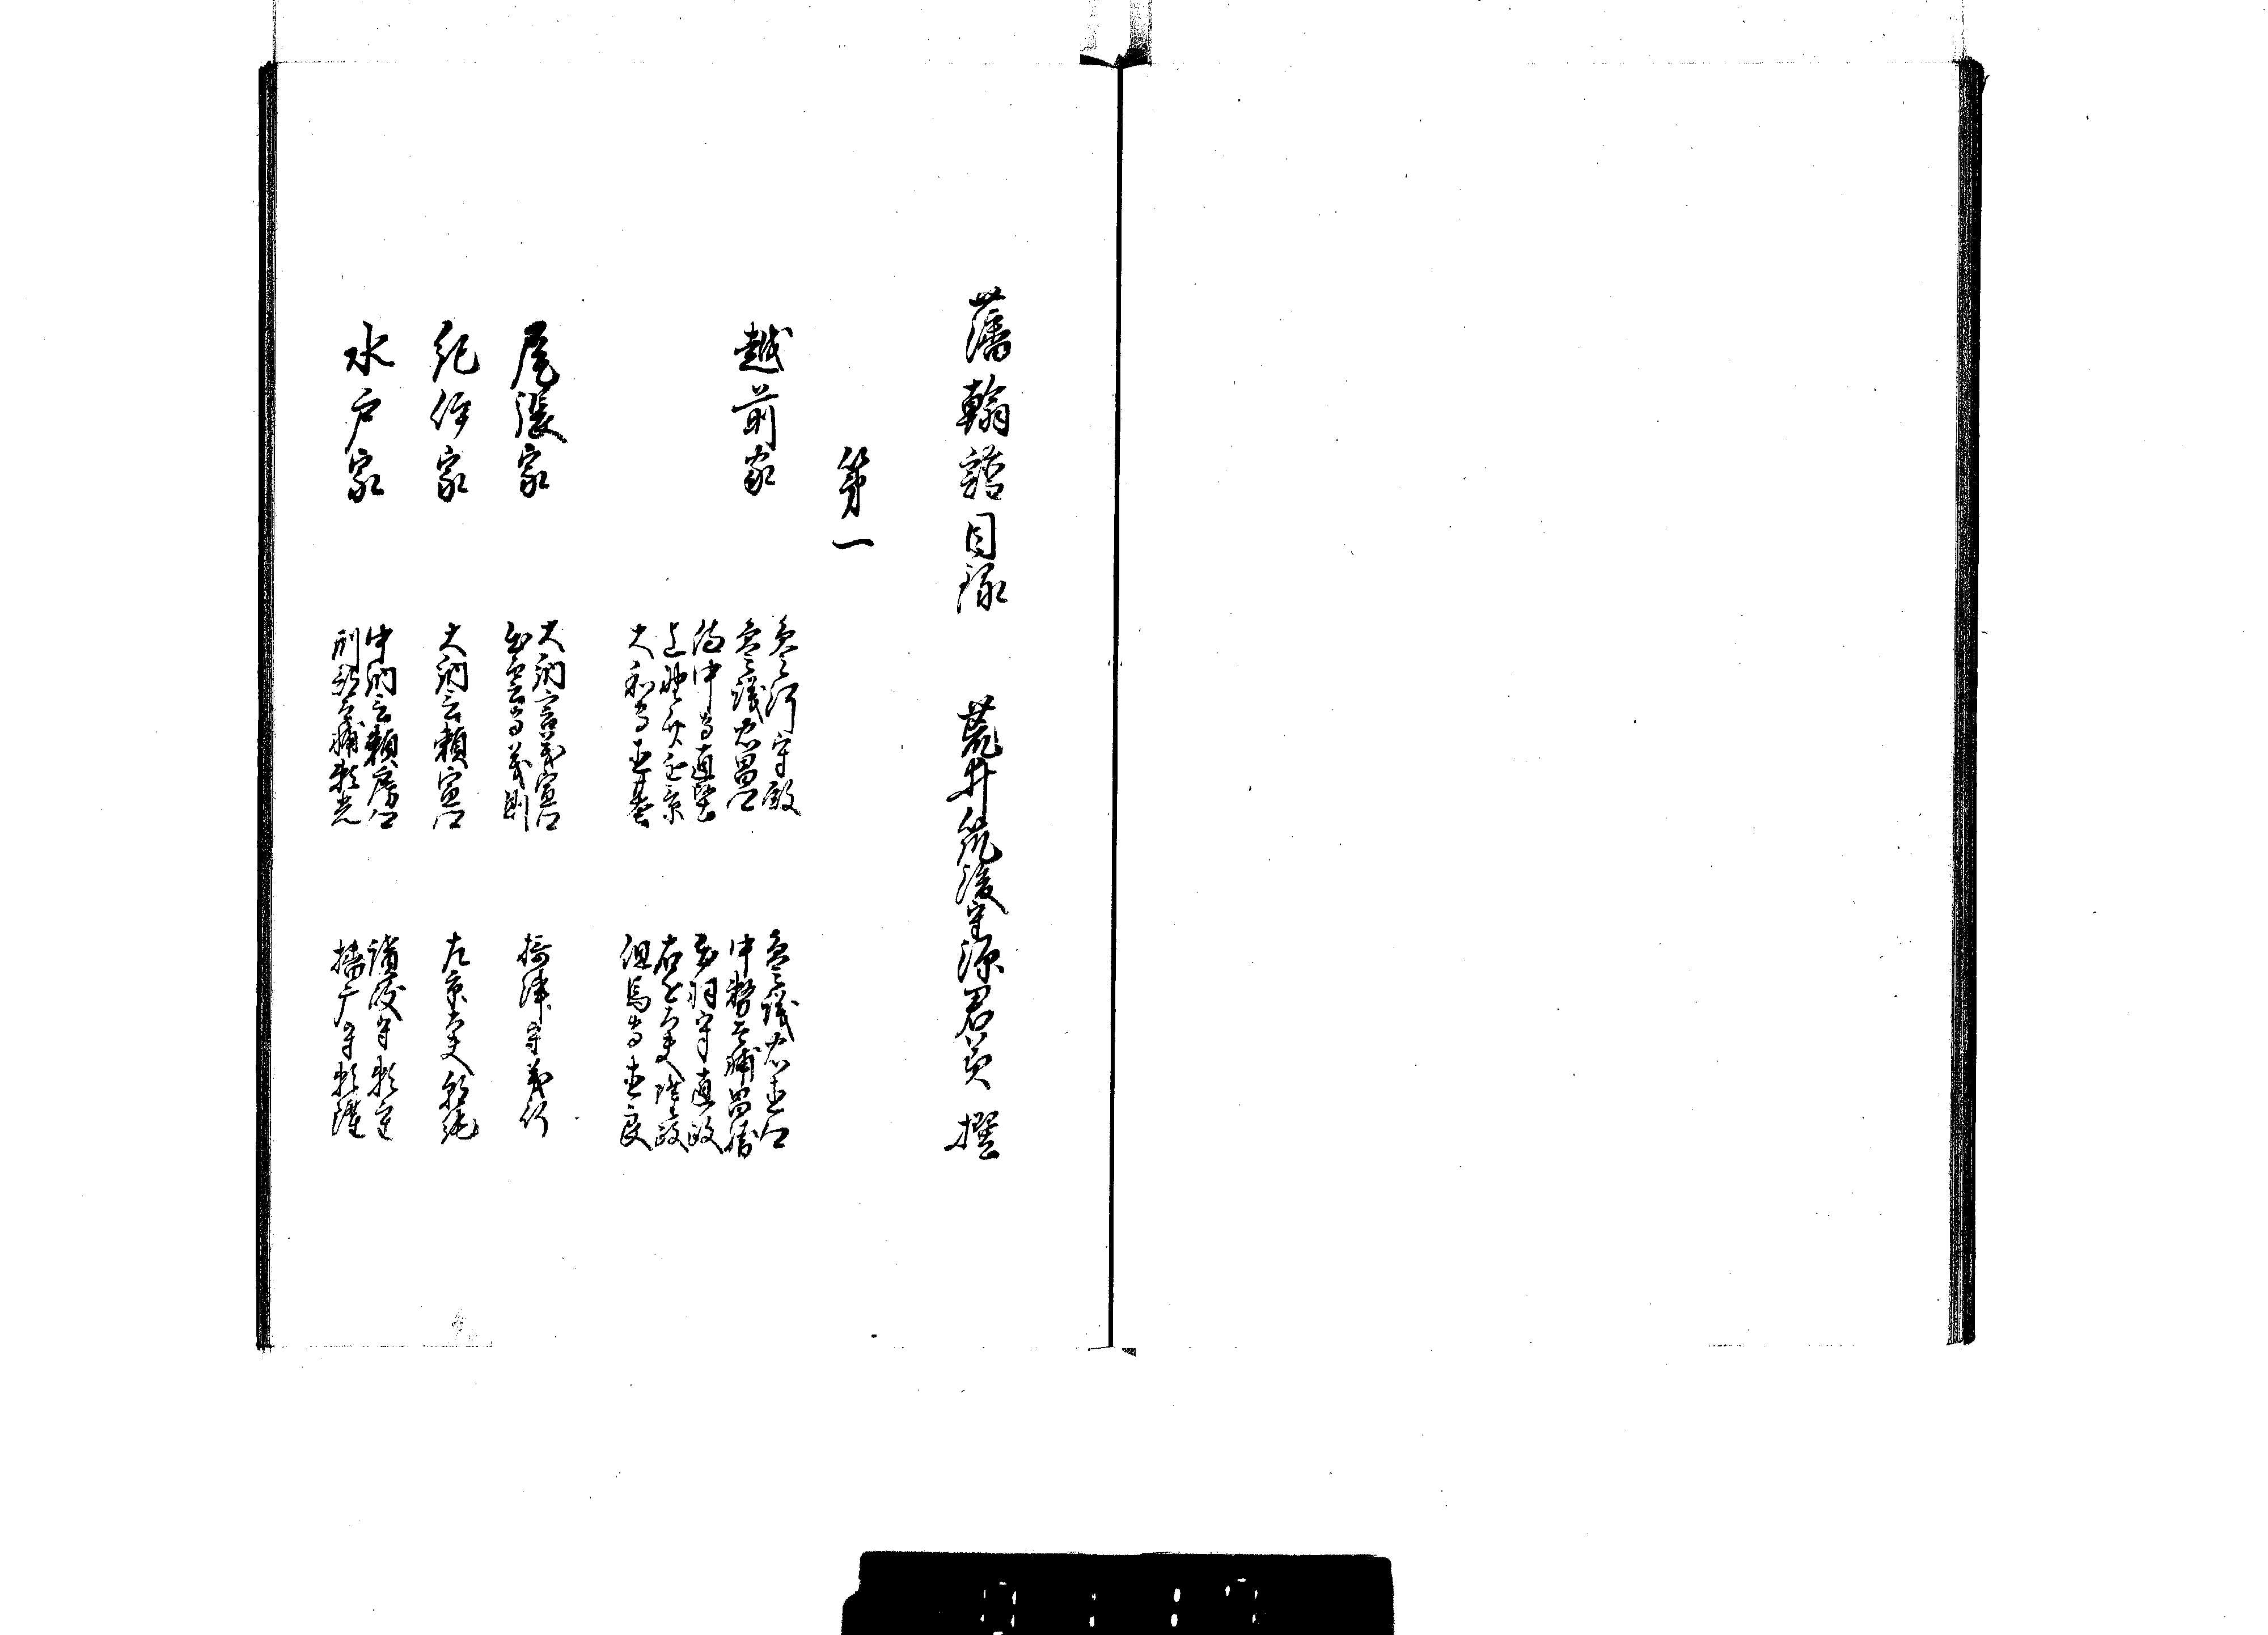 藩翰譜目録　荒井筑後守源君美　撰
第一
越前家
参河守殿　参議忠直卿
参議忠昌卿　中務大輔昌勝
備中守直堅　出羽守直政
上野介近栄　右近大夫隆政
大和守直基　但馬守直良
尾張家
大納言義宣卿　摂津守義行
出雲守義則
紀伊家
大納言頼宣卿　左京大夫頼純
水戸家
中納言頼房卿　讃岐守頼重
刑部大輔頼元　播磨守頼隆